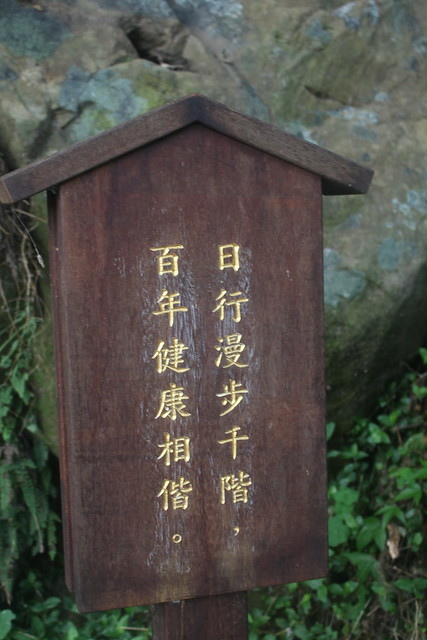 日行漫步千階，
百年健康相偕。